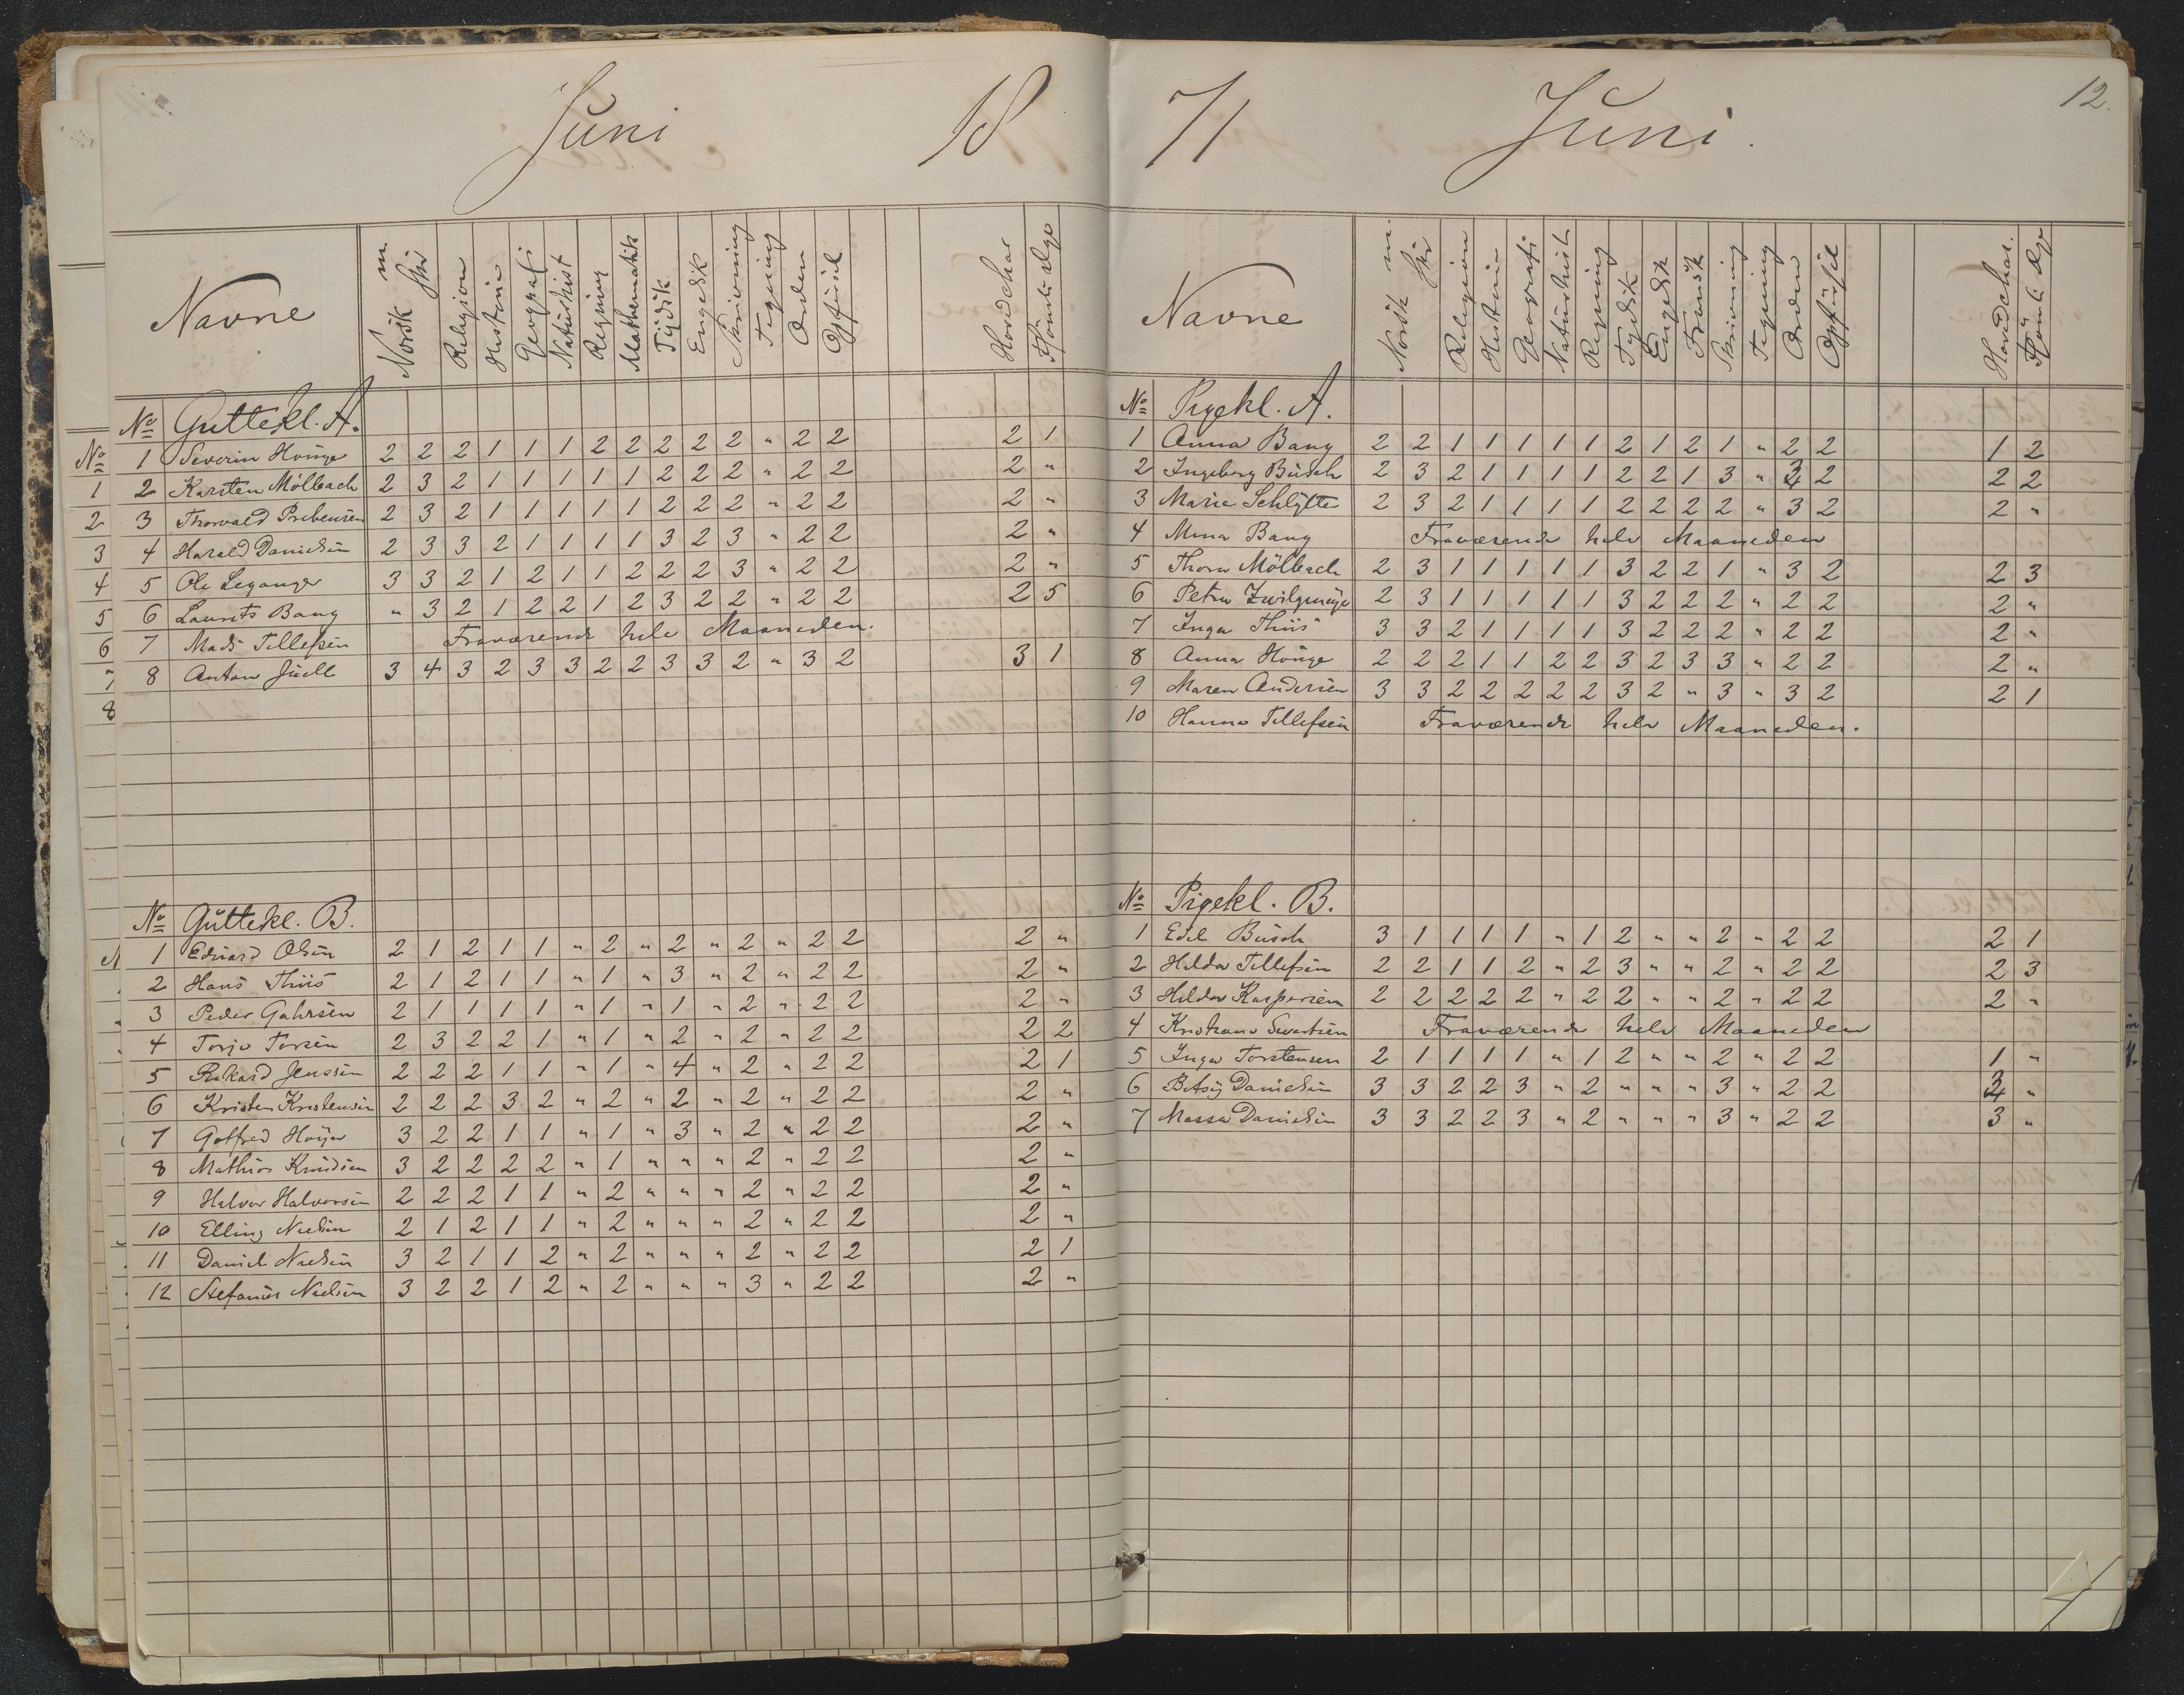 Juni 18
Navne Norsk m skr Religion Historie Geografi Naturhist Regning Mathematik Tydsk Engelsk Skrivning Tegning Orden Opførsel Hovedchar Forsömte dge
No Guttekl. A.
1 Severin Houge 2 2 2 1 1 1 2 2 2 2 2 " 2 2 2 1
2 Karsten Mölbach 2 3 2 1 1 1 1 1 2 2 2 " 2 2 2 "
3 Thorvald Prebensen 2 3 2 1 1 1 1 1 2 2 2 " 2 2 2 "
4 Harald Danielsen 2 3 3 2 1 1 1 1 3 2 3 " 2 2 2 "
5 Ole Leganger 3 3 2 1 2 1 1 2 2 2 3 " 2 2 2 "
6 Laurits Bang " 3 2 1 2 2 1 2 3 2 2 " 2 2 2 5
7 Mads Tellefsen Fraværende hele Maaneden.
8 Anton Juell 3 4 3 2 3 3 2 2 3 3 2 " 3 2 3 1
No Guttekl. B.
1 Edvard Olsen 2 1 2 1 1 " 2 " 2 " 2 " 2 2 2 "
2 Hans Thiis 2 1 2 1 1 " 1 " 3 " 2 " 2 2 2 "
3 Peder Gahrsen 2 1 1 1 1 " 1 " 1 " 2 " 2 2 2 "
4 Terje Tersen 2 3 2 2 1 " 1 " 2 " 2 " 2 2 2 2
5 Rikard Jenssen 2 2 2 1 1 " 1 " 4 " 2 " 2 2 2 1
6 Kristen Kristensen 2 2 2 3 2 " 2 " 2 " 2 " 2 2 2 "
7 Gotfred Höyer 3 2 2 1 1 " 1 " 3 " 2 " 2 2 2 "
8 Mathias Knudsen 3 2 2 2 2 " 1 " " " 2 " 2 2 2 "
9 Halvor Halvorsen 2 2 2 1 1 " 2 " " " 2 " 2 2 2 "
10 Elling Nielsen 2 1 2 1 1 " 2 " " " 2 " 2 2 2 "
11 Daniel Nielsen 3 2 1 1 2 " 2 " " " 2 " 2 2 2 1
12 Stefanus Nielsen 3 2 2 1 2 " 2 " " " 3 " 2 2 2 "
71 Juni. 12.
Navne Norsk m skr Religion Historie Geografi Naturhist Regning Tydsk Engelsk Fransk Skrivning Tegning Orden Opførsel Hovedchar. Forsömte dge
No Pigekl. A.
1 Anna Bang 2 2 1 1 1 1 1 2 1 2 1 " 2 2 1 2
2 Ingeborg Busch 2 3 2 1 1 1 1 2 2 1 3 " 3 2 2 2
3 Marie Schlytte 2 3 2 1 1 1 1 2 2 2 2 " 3 2 2 "
4 Mina Bang Fraværende hele Maaneden
5 Thora Mölbach 2 3 1 1 1 1 1 3 2 2 1 " 3 2 2 3
6 Petra Zwilgmeyer 2 3 1 1 1 1 1 3 2 2 2 " 2 2 2 "
7 Inga Thiis 3 3 2 1 1 1 1 3 2 2 2 " 2 2 2 "
8 Anna Houge 2 2 2 1 1 2 2 3 2 3 3 " 2 2 2 "
9 Maren Andersen 3 3 2 2 2 2 2 3 2 " 3 " 3 2 2 1
10 Hanna Tellefsen Fraværende hele Maaneden.
No Pigekl. B.
1 Edel Busch 3 1 1 1 1 " 1 2 " " 2 " 2 2 2 1
2 Hilda Tellefsen 2 2 1 1 2 " 2 3 " " 2 " 2 2 2 3
3 Hilda Kaspersen 2 2 2 2 2 " 2 2 " " 2 " 2 2 2 "
4 Kristiane Sivertsen Fraværende hele Maaneden
5 Inga Torstensen 2 1 1 1 1 " 1 2 " " 2 " 2 2 1 "
6 Betsy Danielsen 3 3 2 2 3 " 2 " " " 3 " 2 2 3 "
7 Massa Danielsen 3 3 2 2 3 " 2 " " " 3 " 2 2 3 "